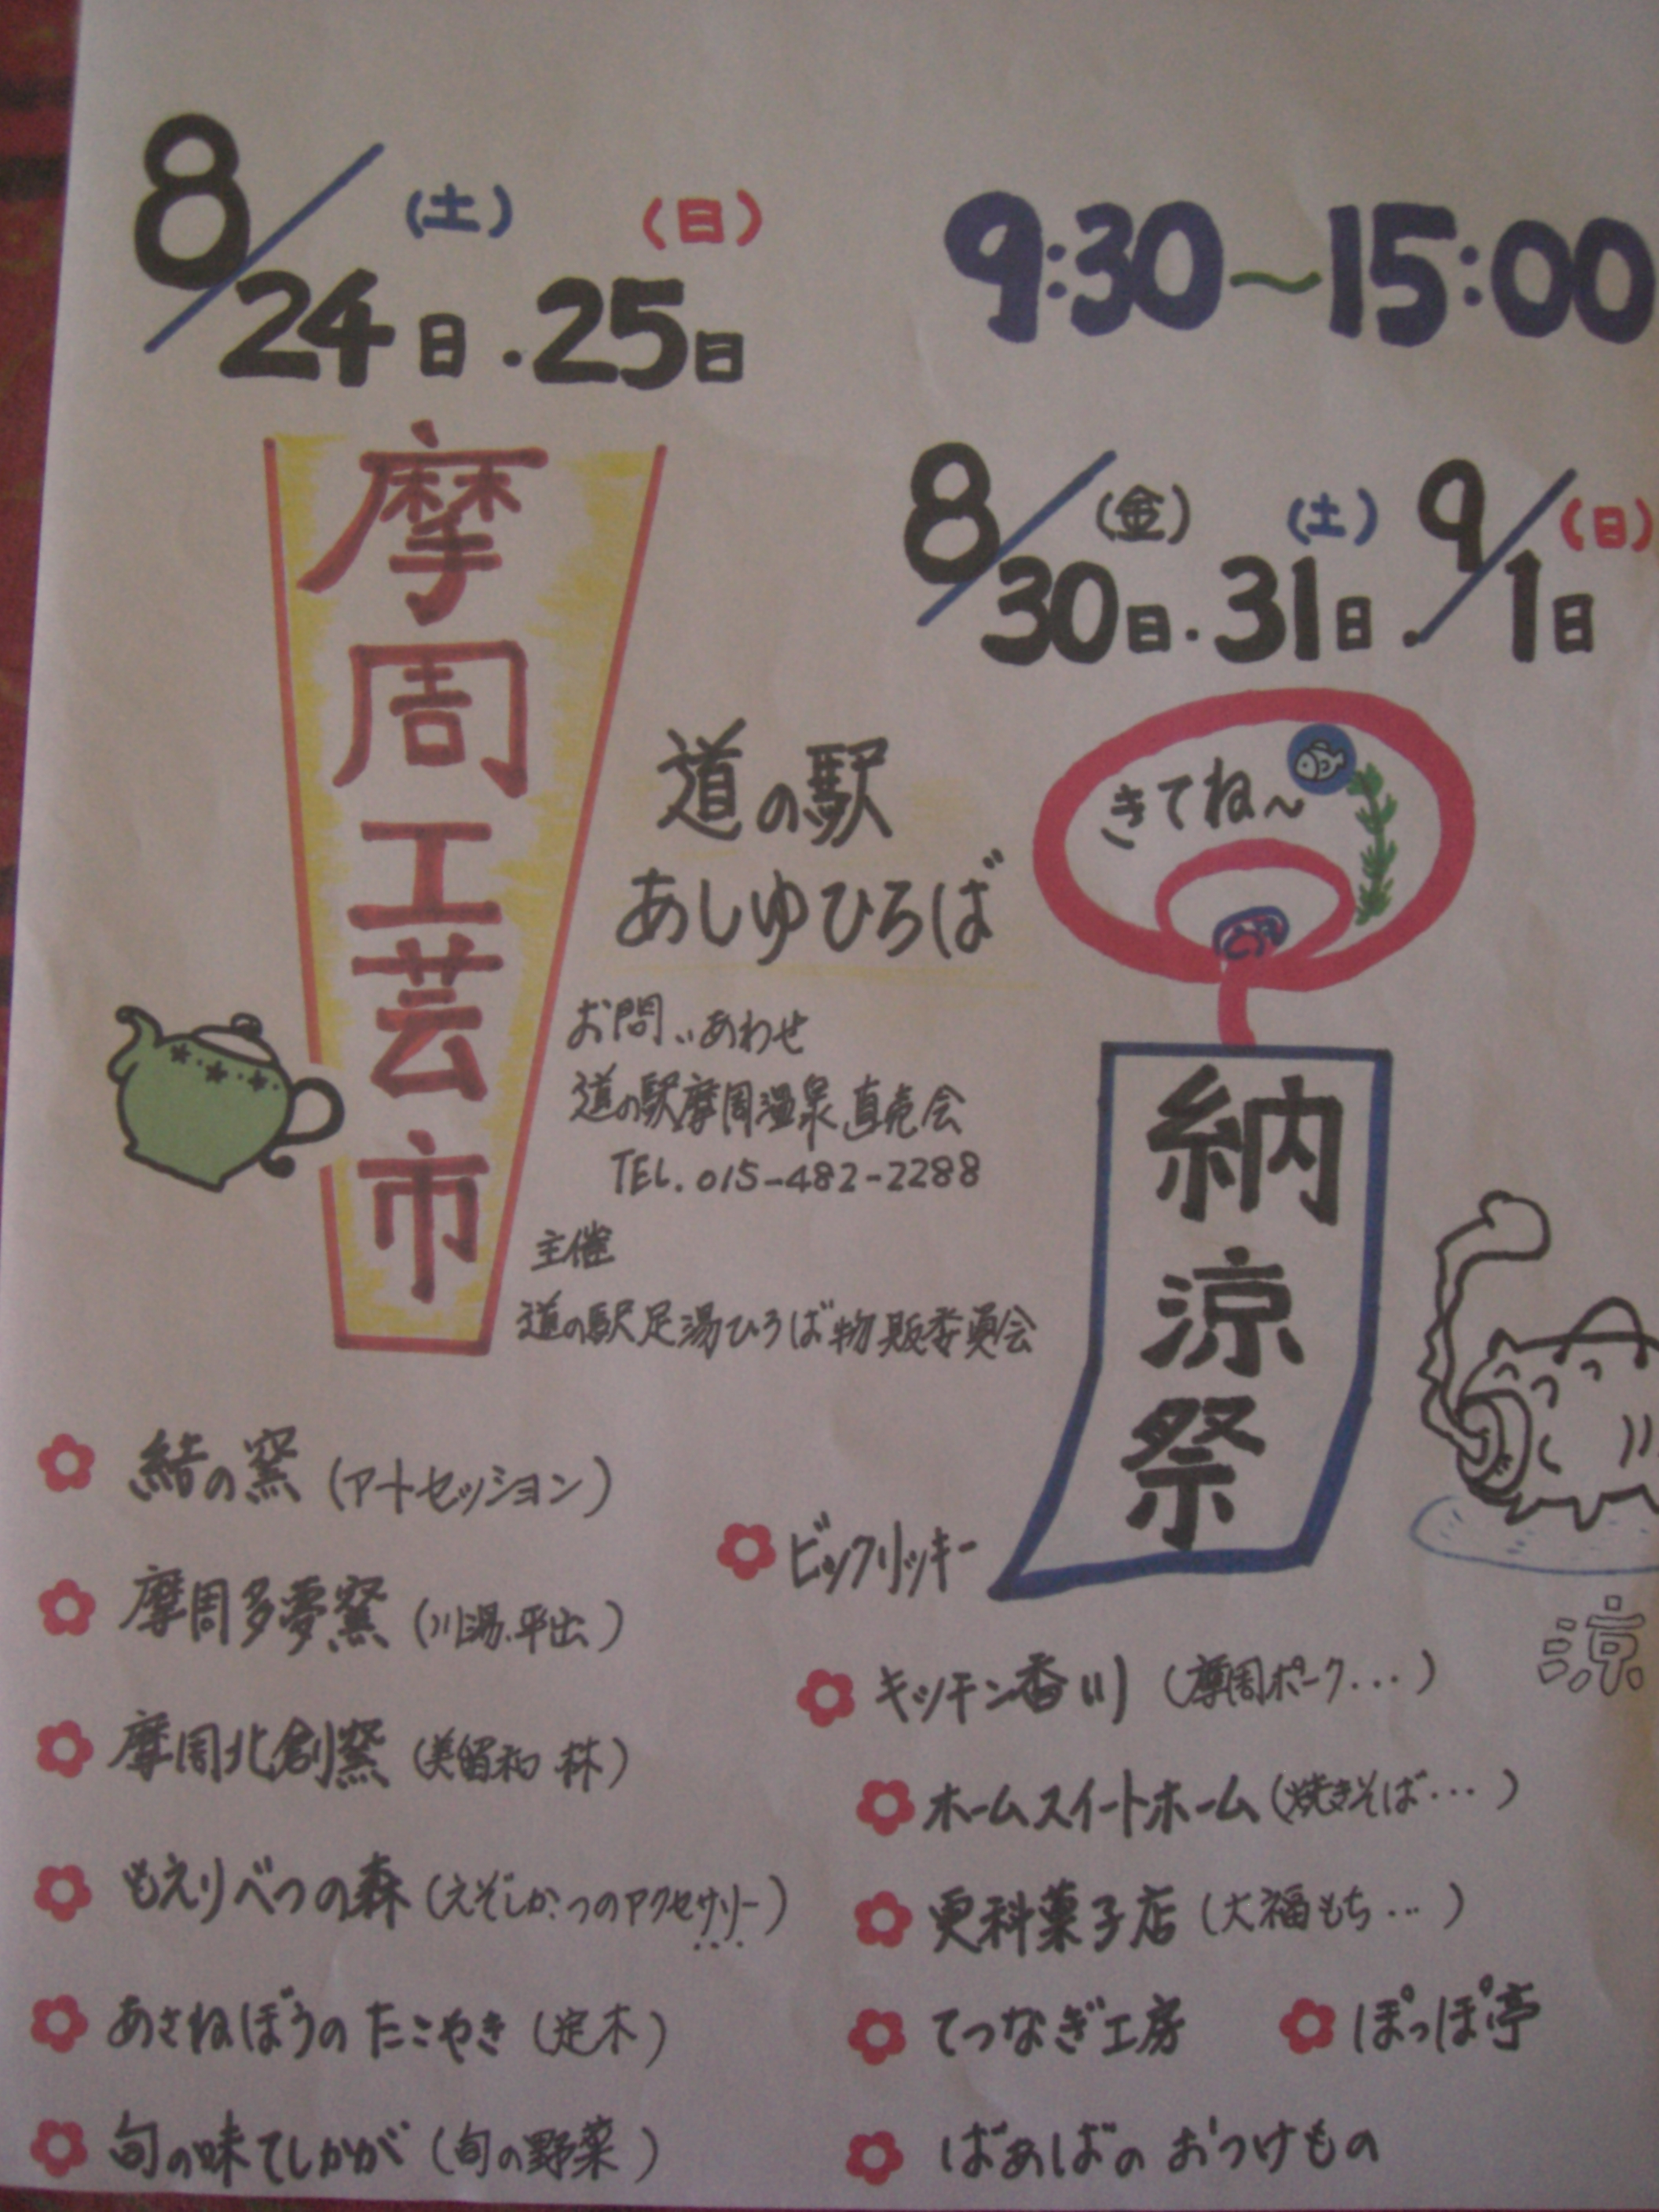 8/24日(土)・25日(日)
9:30～15:00
8/30日(金)・31日(土)・9/1日(日)
摩周工芸市
道の駅
あしゆひろば
きてね～
お問いあわせ
道の駅摩周温泉直売会
TEL.015-482-2288
主催
道の駅足湯ひろば物販委員会
納涼祭
涼
結の窯(アートセッション)
摩周多夢窯(川湯.平出)
摩周北創窯(美留和 林)
もえりべつの森(えぞしか.つのアクセサリー)
...
あさねぼうのたこやき(定木)
旬の味てしかが(旬の野菜)
ビックリッキー
キッチン香川(摩周ポーク...)
ホームスイートホーム(焼きそば...)
更科菓子店(大福もち...)
てつなぎ工房
ぽっぽ亭
ばあばのおつけもの